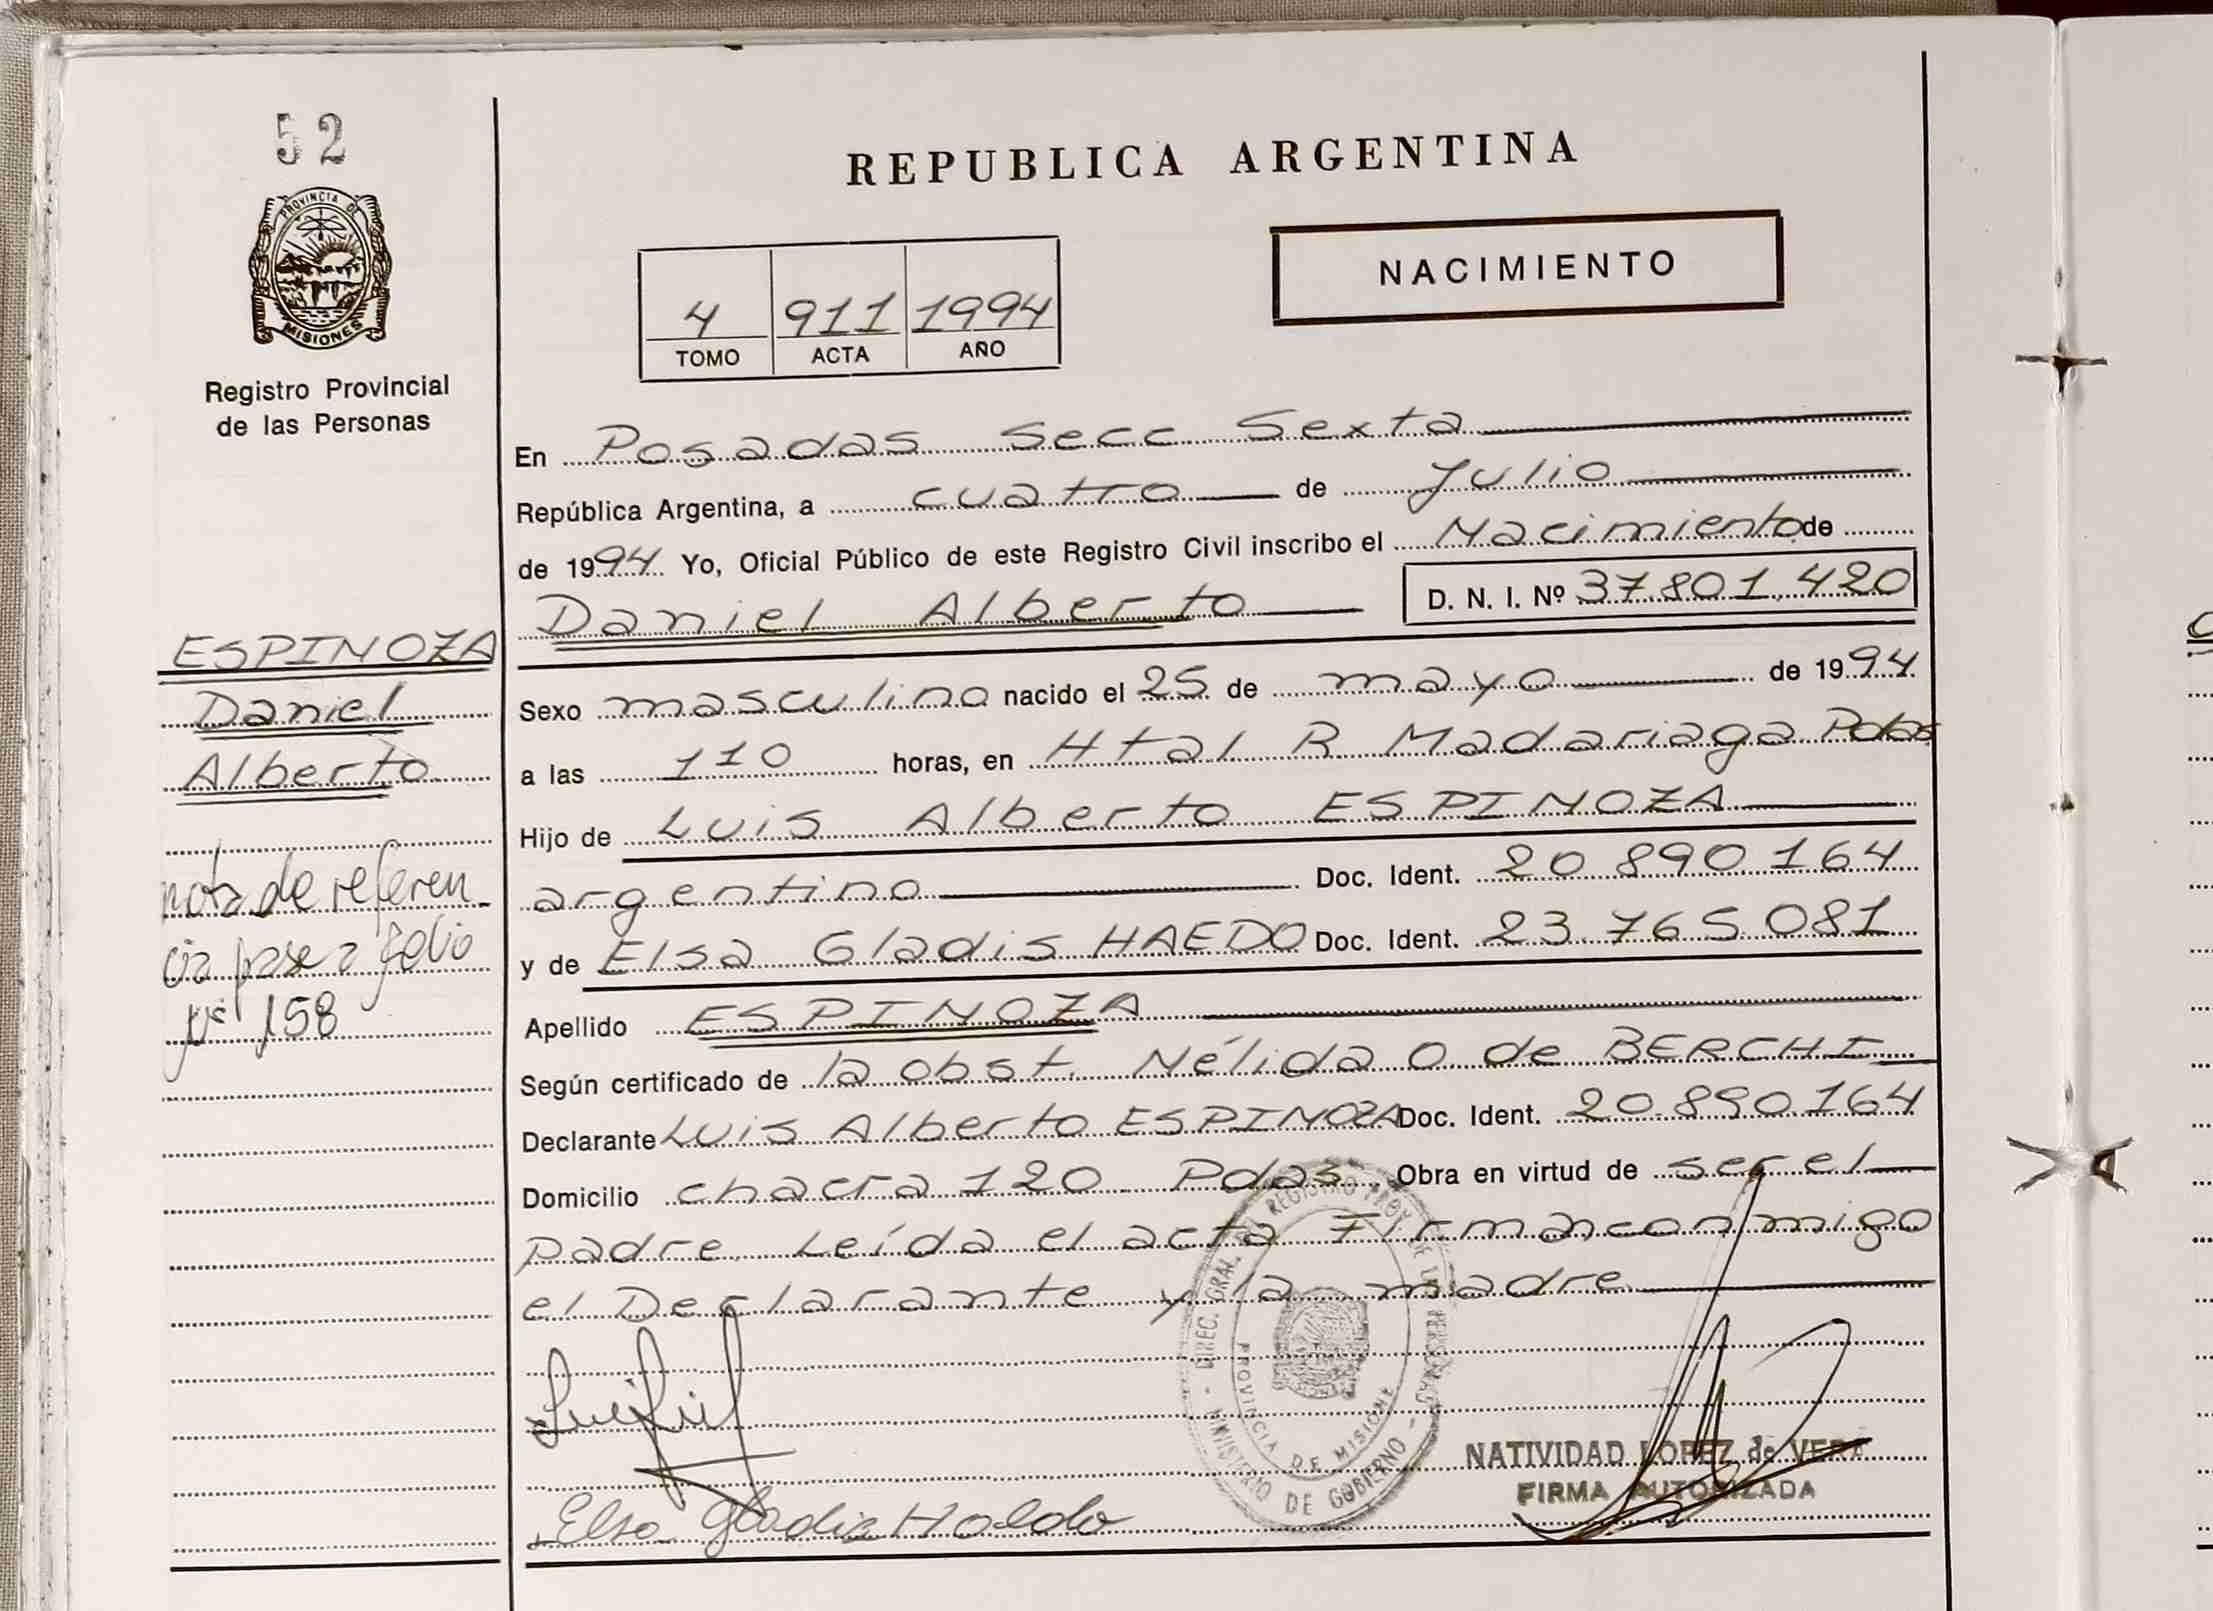 52
PROVINCIA DE
MISIONES
Registro Provincial
de las Personas
ESPINOZA
Daniel
Alberto
nota de referen-
cia pase a folio
Nº 158
REPUBLICA ARGENTINA
NACIMIENTO
4 911 1994
TOMO ACTA AÑO
En Posadas Secc Sexta
República Argentina, a cuatro de Julio
de 1994 Yo, Oficial Público de este Registro Civil inscribo el Nacimiento de
Daniel Alberto D. N. I. Nº 37.801.420
Sexo masculino nacido el 25 de mayo de 1994
a las 110 horas, en Htal R Madariaga Pdas
Hijo de Luis Alberto ESPINOZA
argentino Doc. Ident. 20 890.164
y de Elsa Gladis HAEDO Doc. Ident. 23.765.081
Apellido ESPINOZA
Según certificado de la obst. Nélida O de BERCHI
Declarante Luis Alberto ESPINOZA Doc. Ident. 20.890164
Domicilio chacra 120 Pdas Obra en virtud de ser el
padre. Leída el acta Firman conmigo
el Declarante y la madre
DIREC. GRAL. DEL REGISTRO PROV. DE LAS PERSONAS
PROVINCIA DE MISIONES
MINISTERIO DE GOBIERNO
NATIVIDAD LOPEZ de VERA
FIRMA AUTORIZADA
Elsa Gladis Haedo